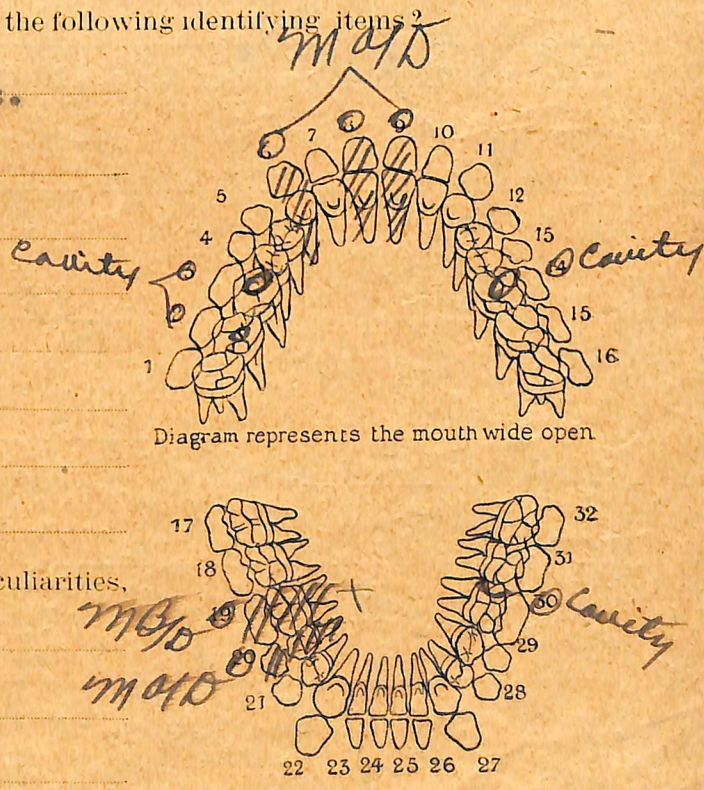 the following identifying items?
M O/D
7 8 9 10
6 11
5 12
4 15
Cavity 3 14 Cavity
2 15
1 16
Diagram represents the mouth wide open
17 32
18 31
culiarities,
19 30 Cavity
29
M O/D 20
21 28
22 23 24 25 26 27